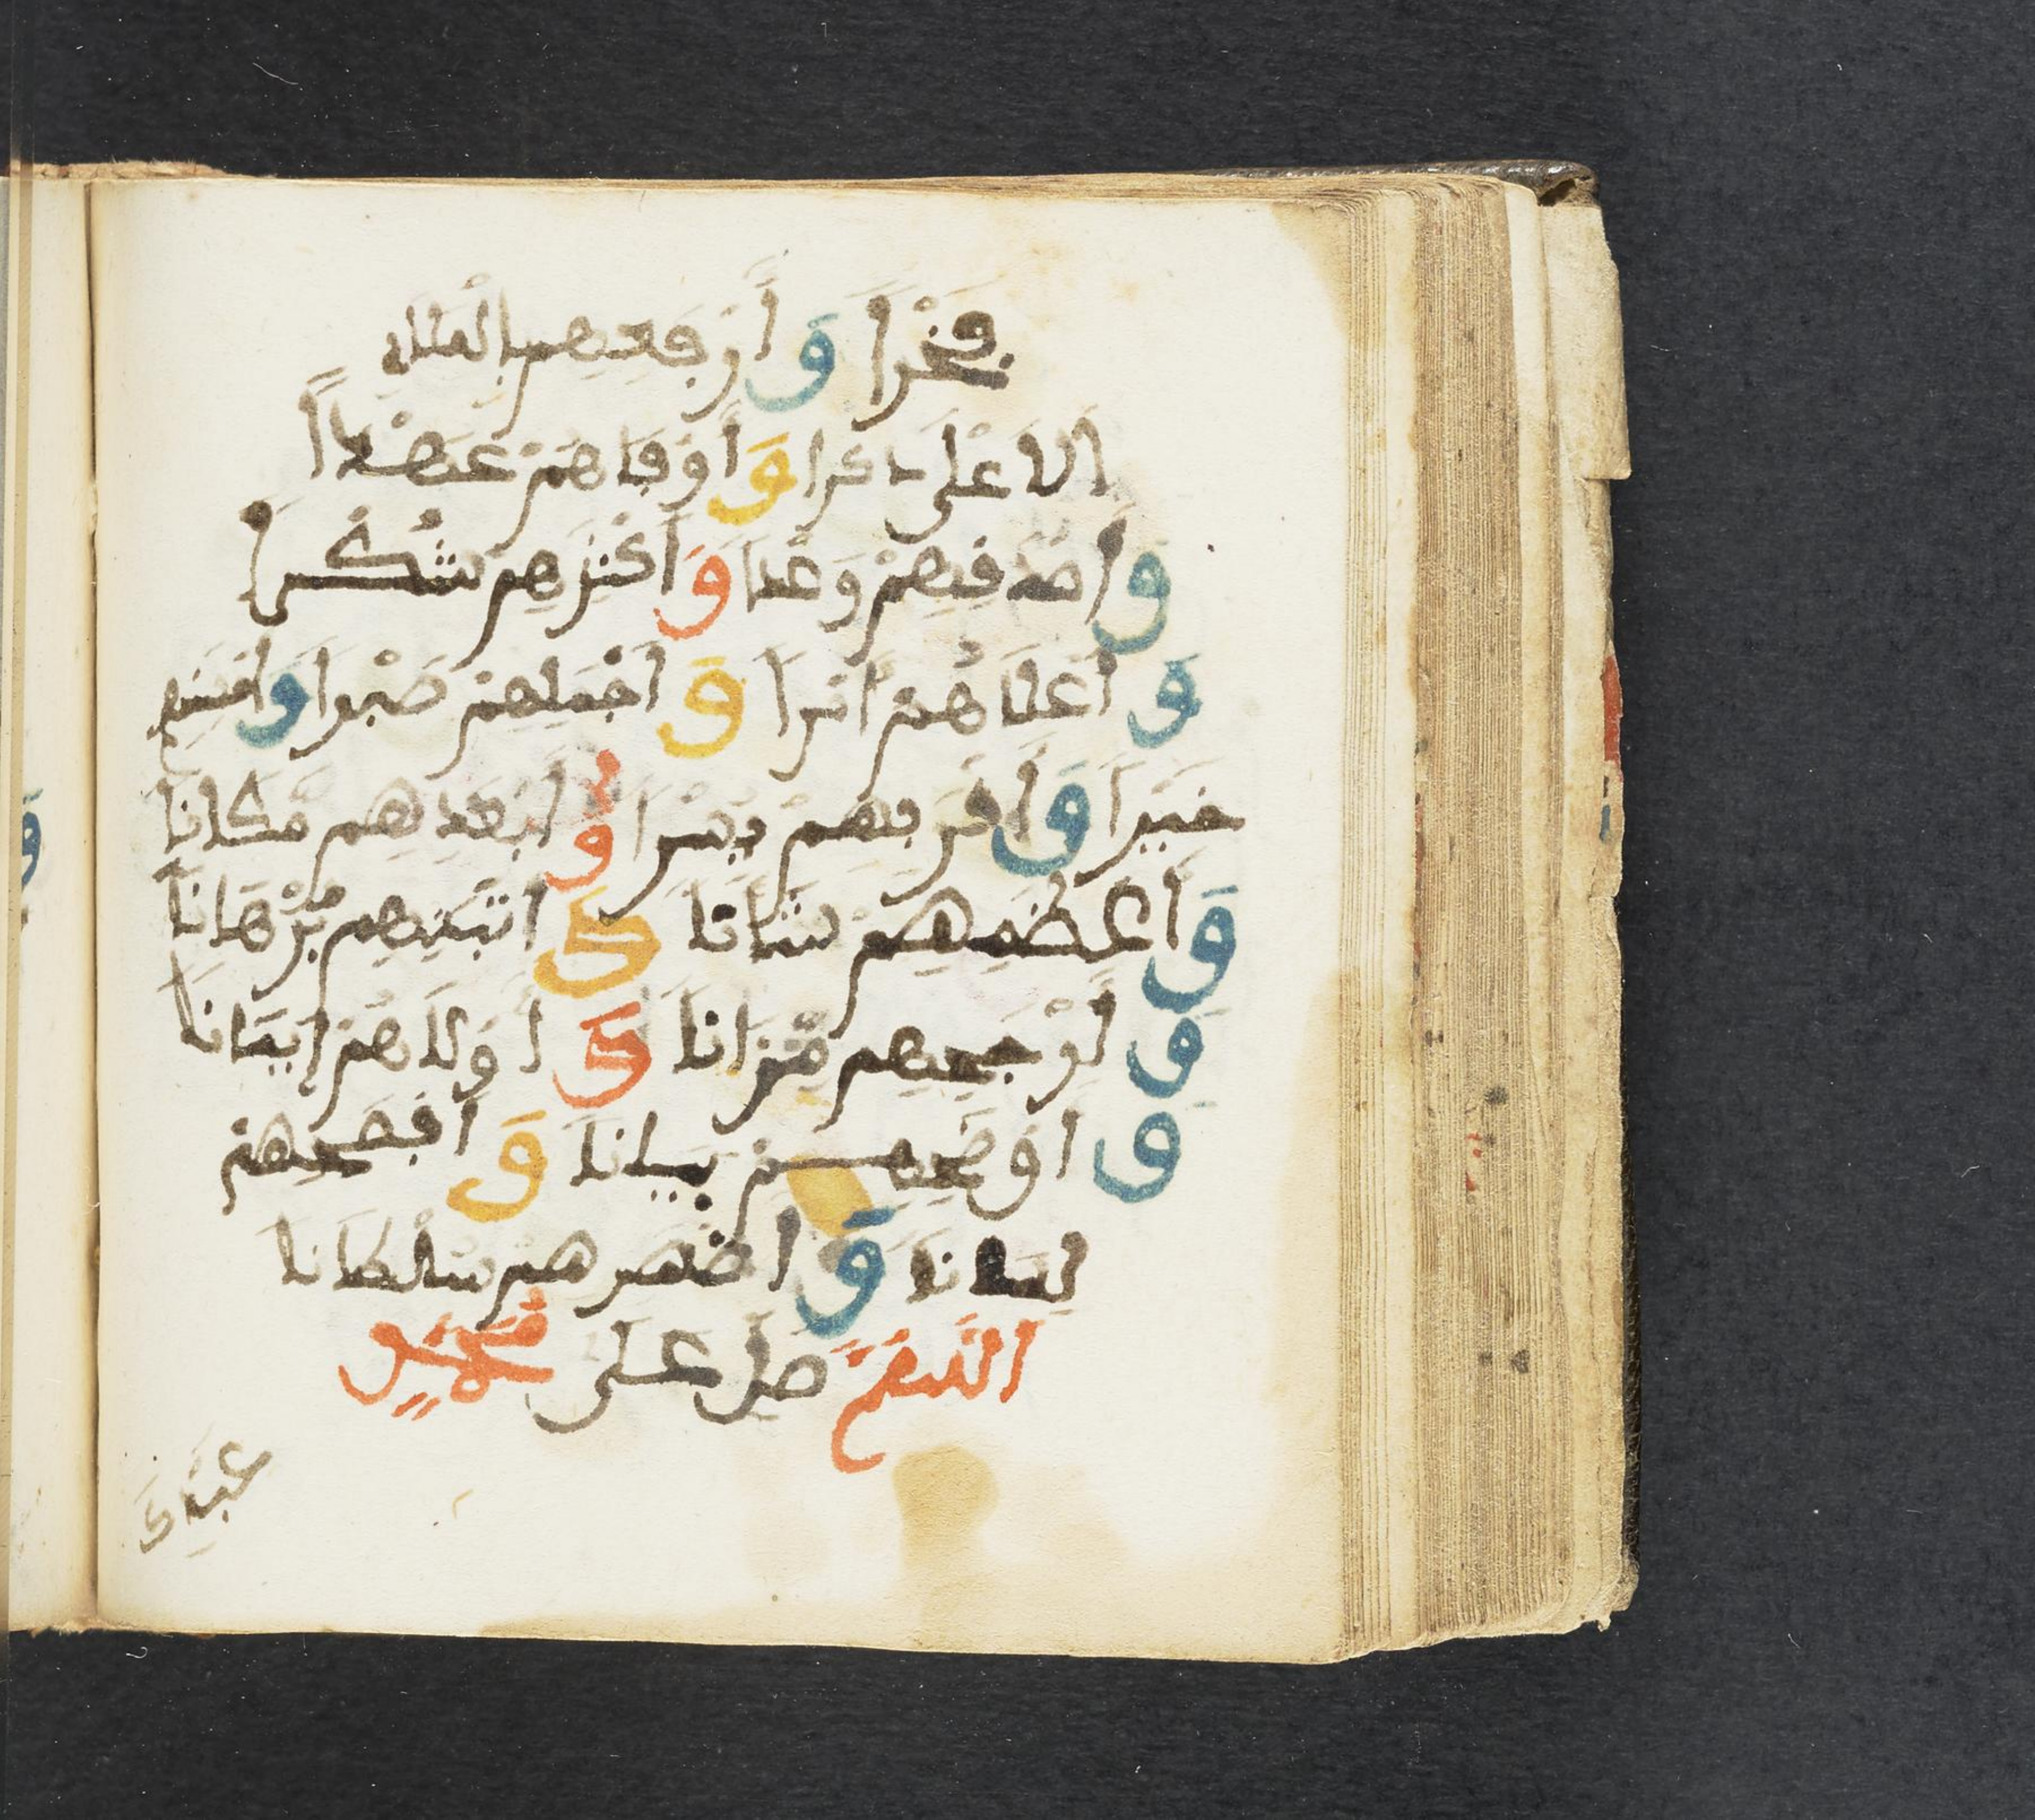 فخرا وأرفعهم بالملإ
الاعلى ذكرا وأوفاهم عهدا
واصدقهم وعدا واكثرهم شكرا
وأعلاهم امرا واجملهم صبرا واحسنهم
خيرا واقربهم يسرا وابعدهم مكانا
وأعظمهم شانا واثبتهم برهانا
وأرجحهم ميزانا واولاهم إيمانا
واوضحهم بيانا وافصحهم
لسانا واظهرهم سلطانا
اللهم صل على محمد
عبدك